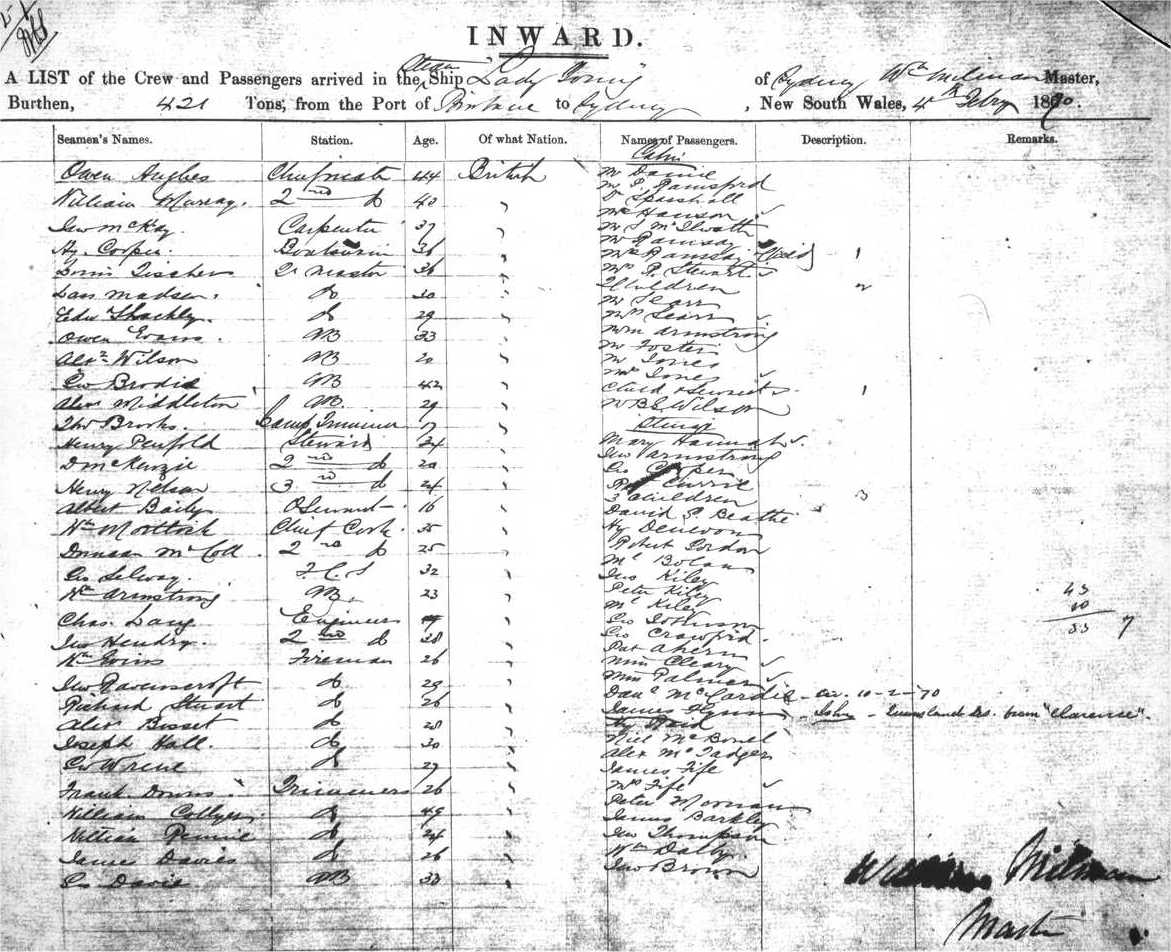 INWARD.
A LIST of the Crew and Passengers arrived in the Steam Ship Lady Young of Sydney Wm Milman Master,
Burthen, 421 Tons, from the Port of Brisbane to Sydney, New South Wales, 4th Febry 1870.
Seamen's Names. Station. Age. Of what Nation. Names of Passengers. Description. Remarks.
Owen Hughes Chief mate 44 British
William Murray. 2nd do 40 "
Jno McKay. Carpenter 37 "
Hy. Cooper. Boatswain 36 "
Louis Tischer 2r master 36 "
Lars Madsen. do 30 "
Edw Shackly. do 29 "
Owen Evans. AB 33 "
Alexr Wilson AB 20 "
Geo Brodie AB 42 "
Alexr Middleton AB. 29 "
Thos Brooks. Trimmer 17 "
Henry Penfold Steward 34 "
D McKenzie 2nd do 20 "
Henry Nelson 3rd do 24 "
Albert Baily 16 "
Wm Mortlock Chief Cook 35 "
Duncan McColl. 2nd do 25 "
Geo Selway. 32 "
Wm Armstrong AB. 23 "
Chas. Lang Engineer "
Jas Hendry. 2nd do 28 "
Wm Fireman 26 "
Jno Ravenscroft do 29 "
Richard Stuart do 26 "
Alexr Bisset do 28 "
Joseph Hall. do 30 "
Geo Wrene do 27 "
Frank Downs. Trimmers 26 "
William Collyer. do 49 "
William Rennie do 24 "
James Davies do 26 "
Geo Davie AB 33 "
Cabin
Mr Dainie
Mr S. Rainsford
Mrs Hanson
Mr S McIlwraith
Mr Ramsay
Mrs Ramsay Child 1
Mr P. Stewart
Children 2
Mr Searr
Mrs Searr
Wm Armstrong
Mr Foster
Mr Jones
Mrs Jones
Child & Servant 1
W B S Wilson
Steerage
Mary Hannah
Jno Armstrong
Geo Cooper
Currie
3 Children 3
David S. Beathe
Hy Denison
Robert Gordon
Mc Bolan
Jas Kiley
Peter Kiley
Mc Kiley
Geo Johnson
Geo Crawford.
Pat Ahern
Miss Cleary
Miss Palmer
Danl McCardie 10-2-70
James Flynn from "Clarence".
Hy Reid
Niel McBonel
Alex McTadger
James Fife
Mrs Fife
Peter Moonan
James Barkley
Jno Thompson
Wm Dalby.
Jno Brown
43
10
53 7
William Milman
Master